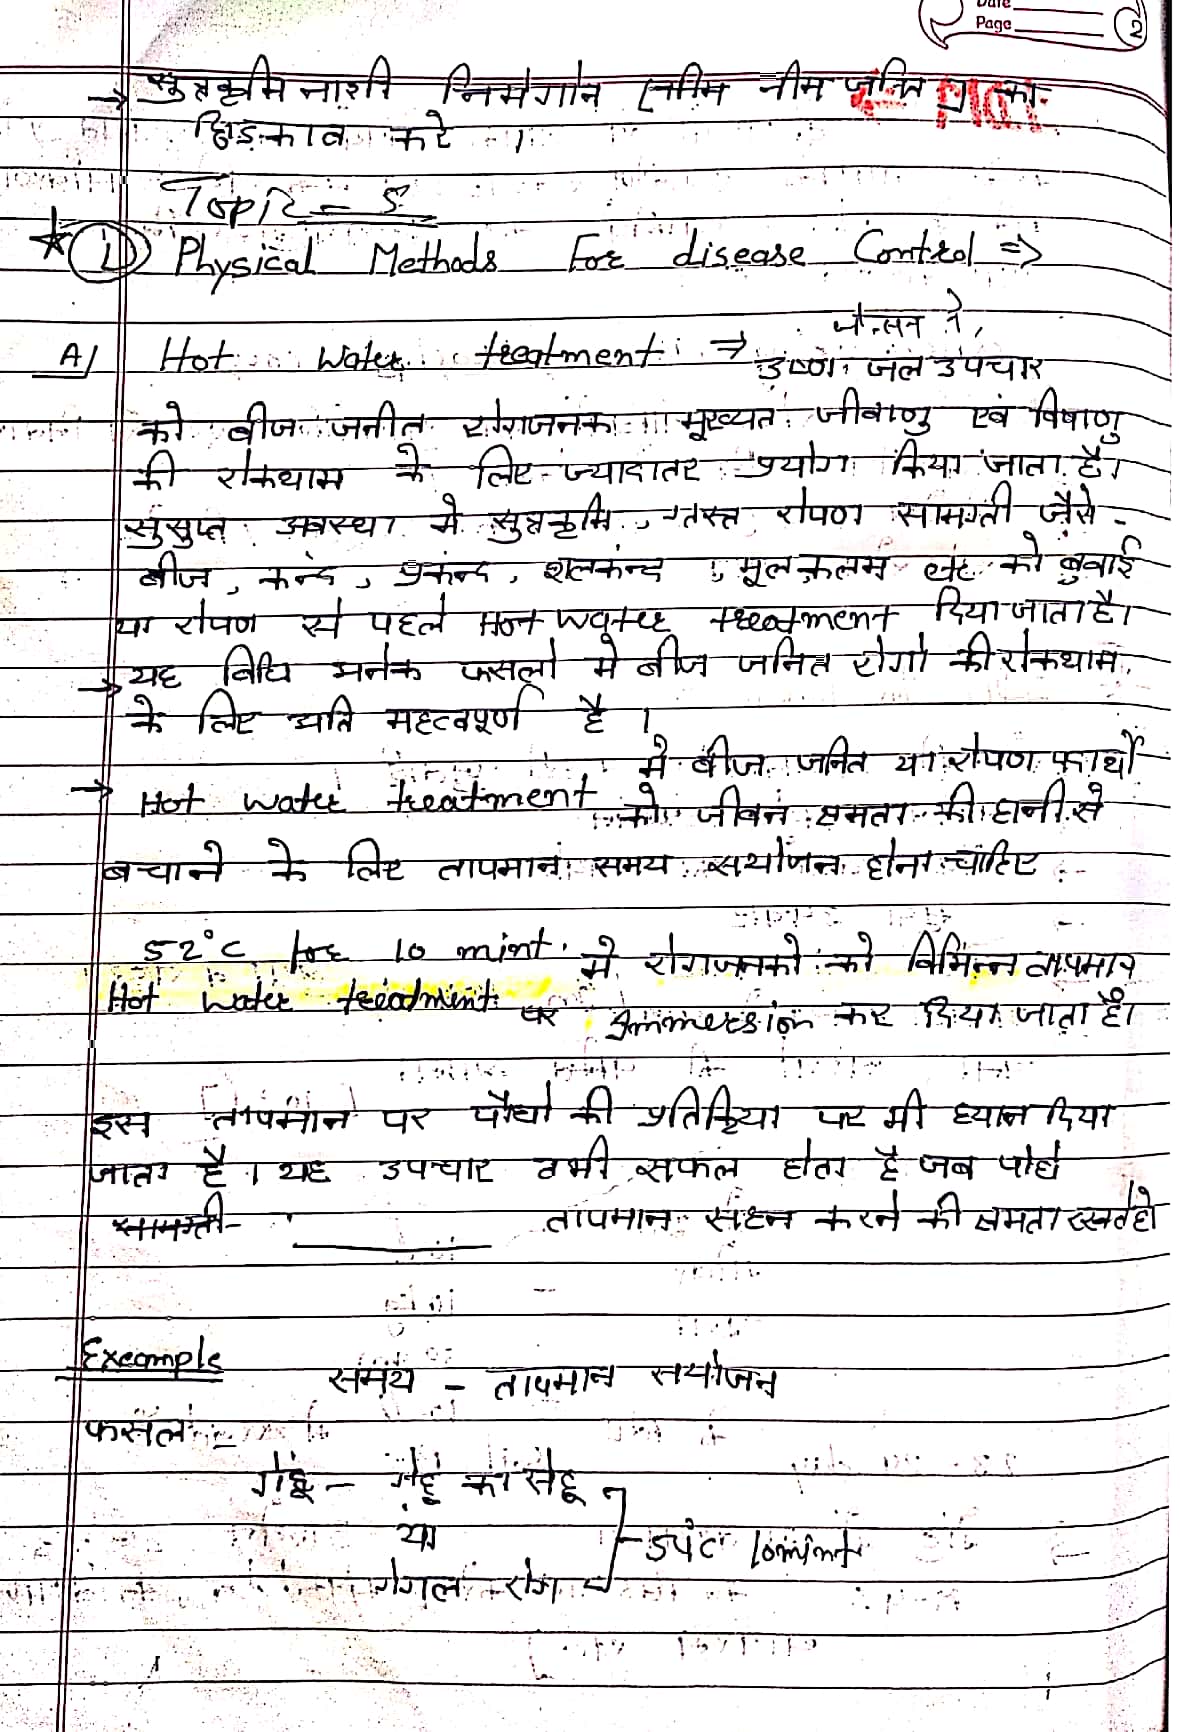 Date
Page 2
→ सुत्रकृमि नाशी निमेगोन [नीम जनित] का
छिडकाव करे ।
Topic - 5
★ ① Physical Methods For disease Control ⇒
A) Hot Water treatment ⇒ जेन्सन ने,
उष्ण जल उपचार
को बीज जनीत रोगजनक मूख्यत जीवाणु एवं विषाणु
की रोकथाम के लिए ज्यादातर प्रयोग किया जाता है।
सुसुप्त अवस्था मे सुत्रकृमि, ग्तस्त रोपण सामग्ती जैसे -
बीज, कन्द, प्रकन्द, शल्ककन्द, मूल कलम etc को बुवाई
या रोपण से पहले Hot Water treatment दिया जाता है।
→ यह विधि अनेक फसलो मे बीज जनित रोगो की रोकथाम
के लिए अति महत्वपूर्ण है ।
→ Hot water treatment मे बीज जनित या रोपण कार्यो
को जीवन क्षमता की हानी से
बचाने के लिए तापमान समय सयोजन होना चाहिए
52°C for 10 mint. मे रोगजनको को विभिन्न तापमान
Hot Water treatment पर Immersion कर दिया जाता है।
इस तापमान पर पौधो की प्रतिक्रिया पर भी ध्यान दिया
जाता है। यह उपचार तभी सफल होता है जब पोधे
सामग्ती तापमान सहन करने की क्षमता रखते हो
Example
समय - तापमान सयोजन
फसल -
गेहूं - गेहूं का सेहू
या
गेगला रोग
54°C 10 mint